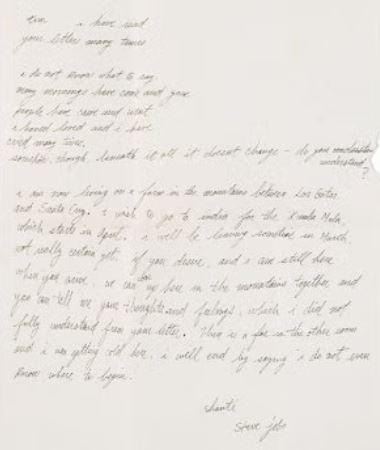 tim i have read
your letter many times
i do not know what to say.
many mornings have come and gone
people have came and went
i have loved and i have
cried many times.
somehow, though, beneath it all it doesnt change - do you
understand
?
i am now living on a farm in the mountains between Los Gatos
and Santa Cruz. i wish to go to india for the Kumba Mela,
which starts in April. i will be leaving sometime in March,
not really certain yet. if you desire, and i am still here
when you arrive, we can go up here in the mountains together, and
you can tell me your thoughts and feelings, which i did not
fully understand from your letter. There is a fire in the other room
and i am getting cold here. i will end by saying i do not even
know where to begin.
shanti
steve jobs